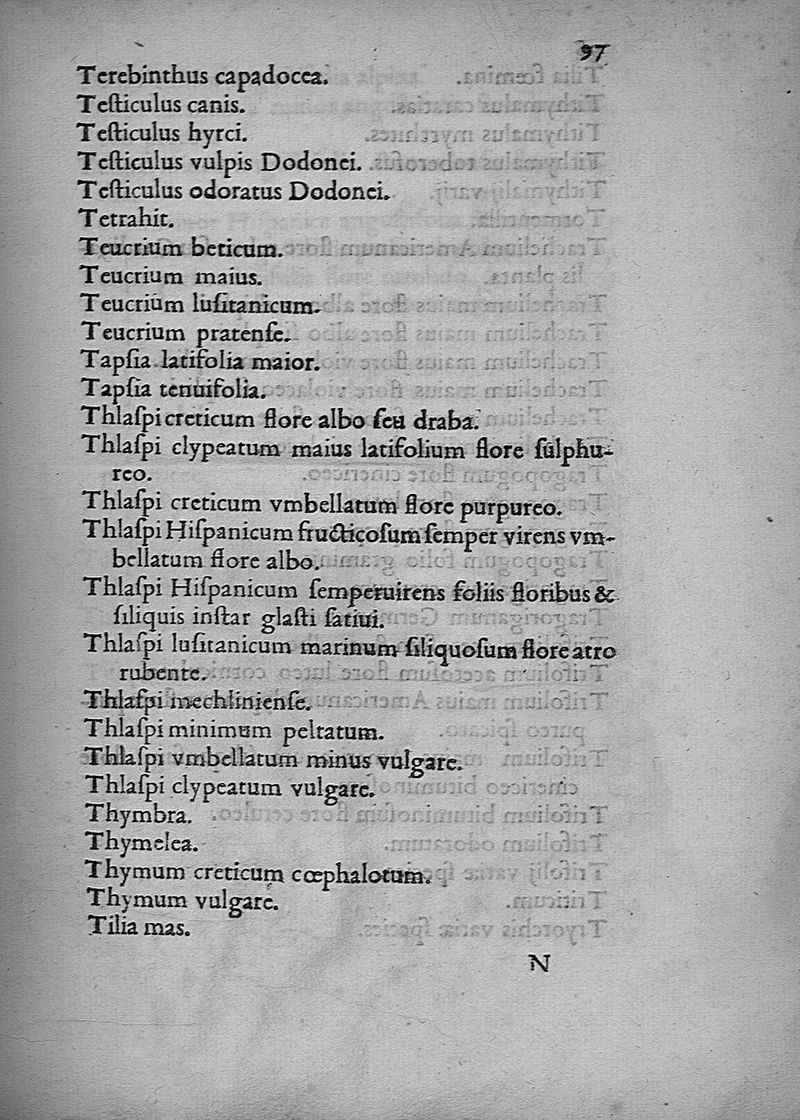 97
Terebinthus capadocea.
Teſticulus canis.
Teſticulus hyrci.
Teſticulus vulpis Dodonei.
Teſticulus odoratus Dodonei.
Tetrahit.
Teucrium beticum.
Teucrium maius.
Teucriūm luſitanicum.
Teucrium pratenſe.
Tapſia latifolia maior.
Tapſia tenuifolia.
Thlaſpi creticum flore albo ſeu draba.
Thlaſpi clypeatum maius latifolium flore ſulphu-
reo.
Thlaſpi creticum vmbellatum flore purpureo.
Thlaſpi Hiſpanicum fructicoſum ſemper virens vm-
bellatum flore albo.
Thlaſpi Hiſpanicum ſemperuirens foliis floribus &
ſiliquis inſtar glaſti ſatiui.
Thlaſpi luſitanicum marinum ſiliquoſum flore atro
rubente.
Thlaſpi mechlinienſe.
Thlaſpi minimum peltatum.
Thlaſpi vmbellatum minus vulgare.
Thlaſpi clypeatum vulgare.
Thymbra.
Thymelea.
Thymum creticum cœphalotum.
Thymum vulgare.
Tilia mas.
N